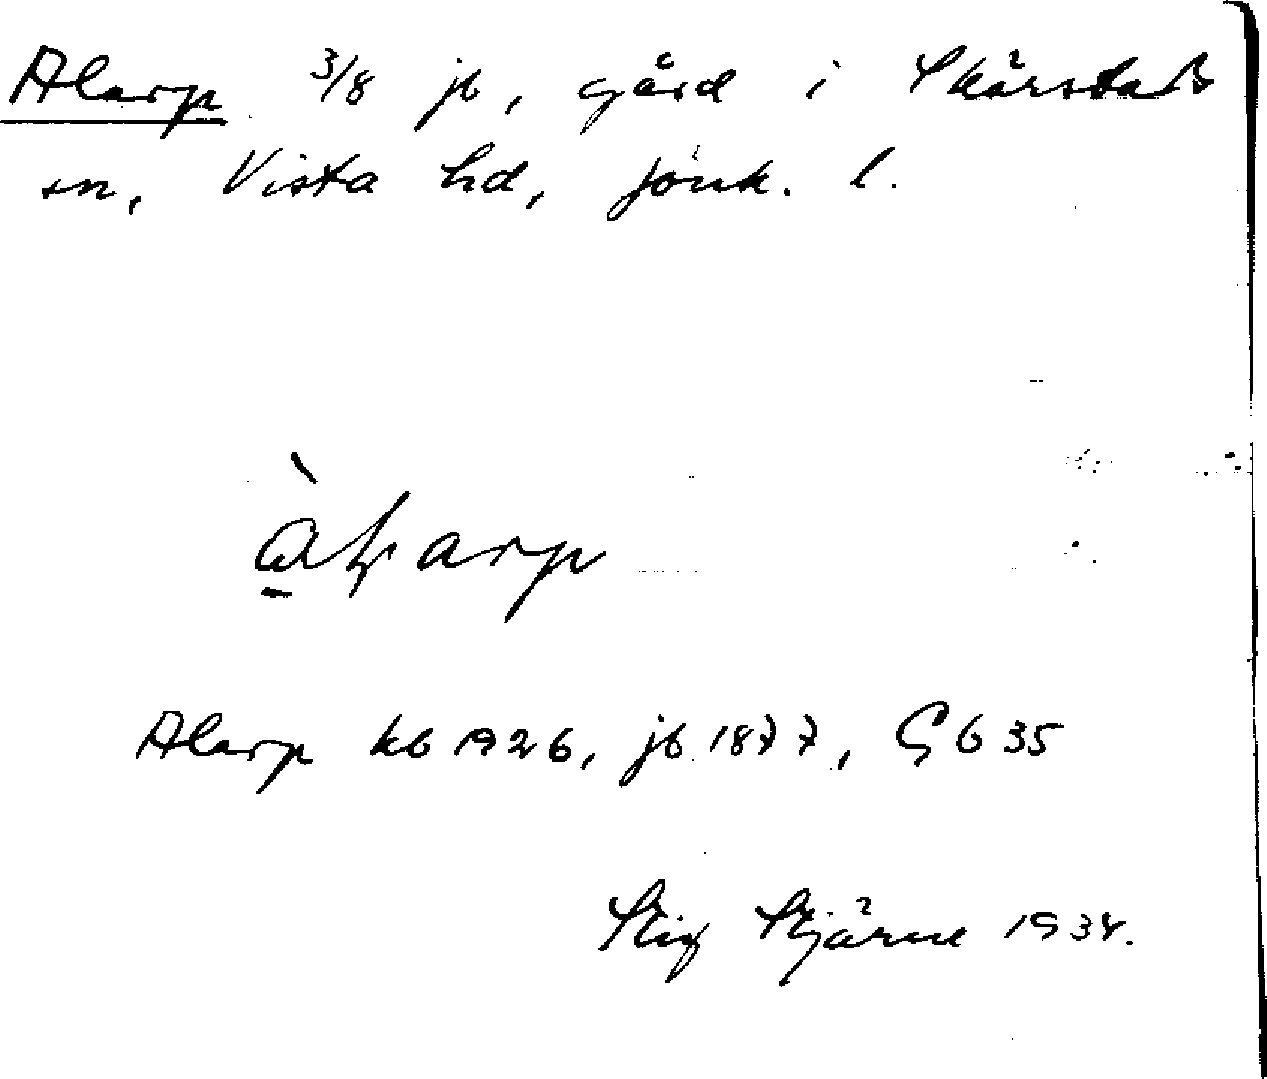 Alarp 3/8 jb, gård i Skärstads
sn, Vista hd, Jönk. l.
Alarp kb 1926, jb 1877, Gb 35
Stig Stjärne 1934.